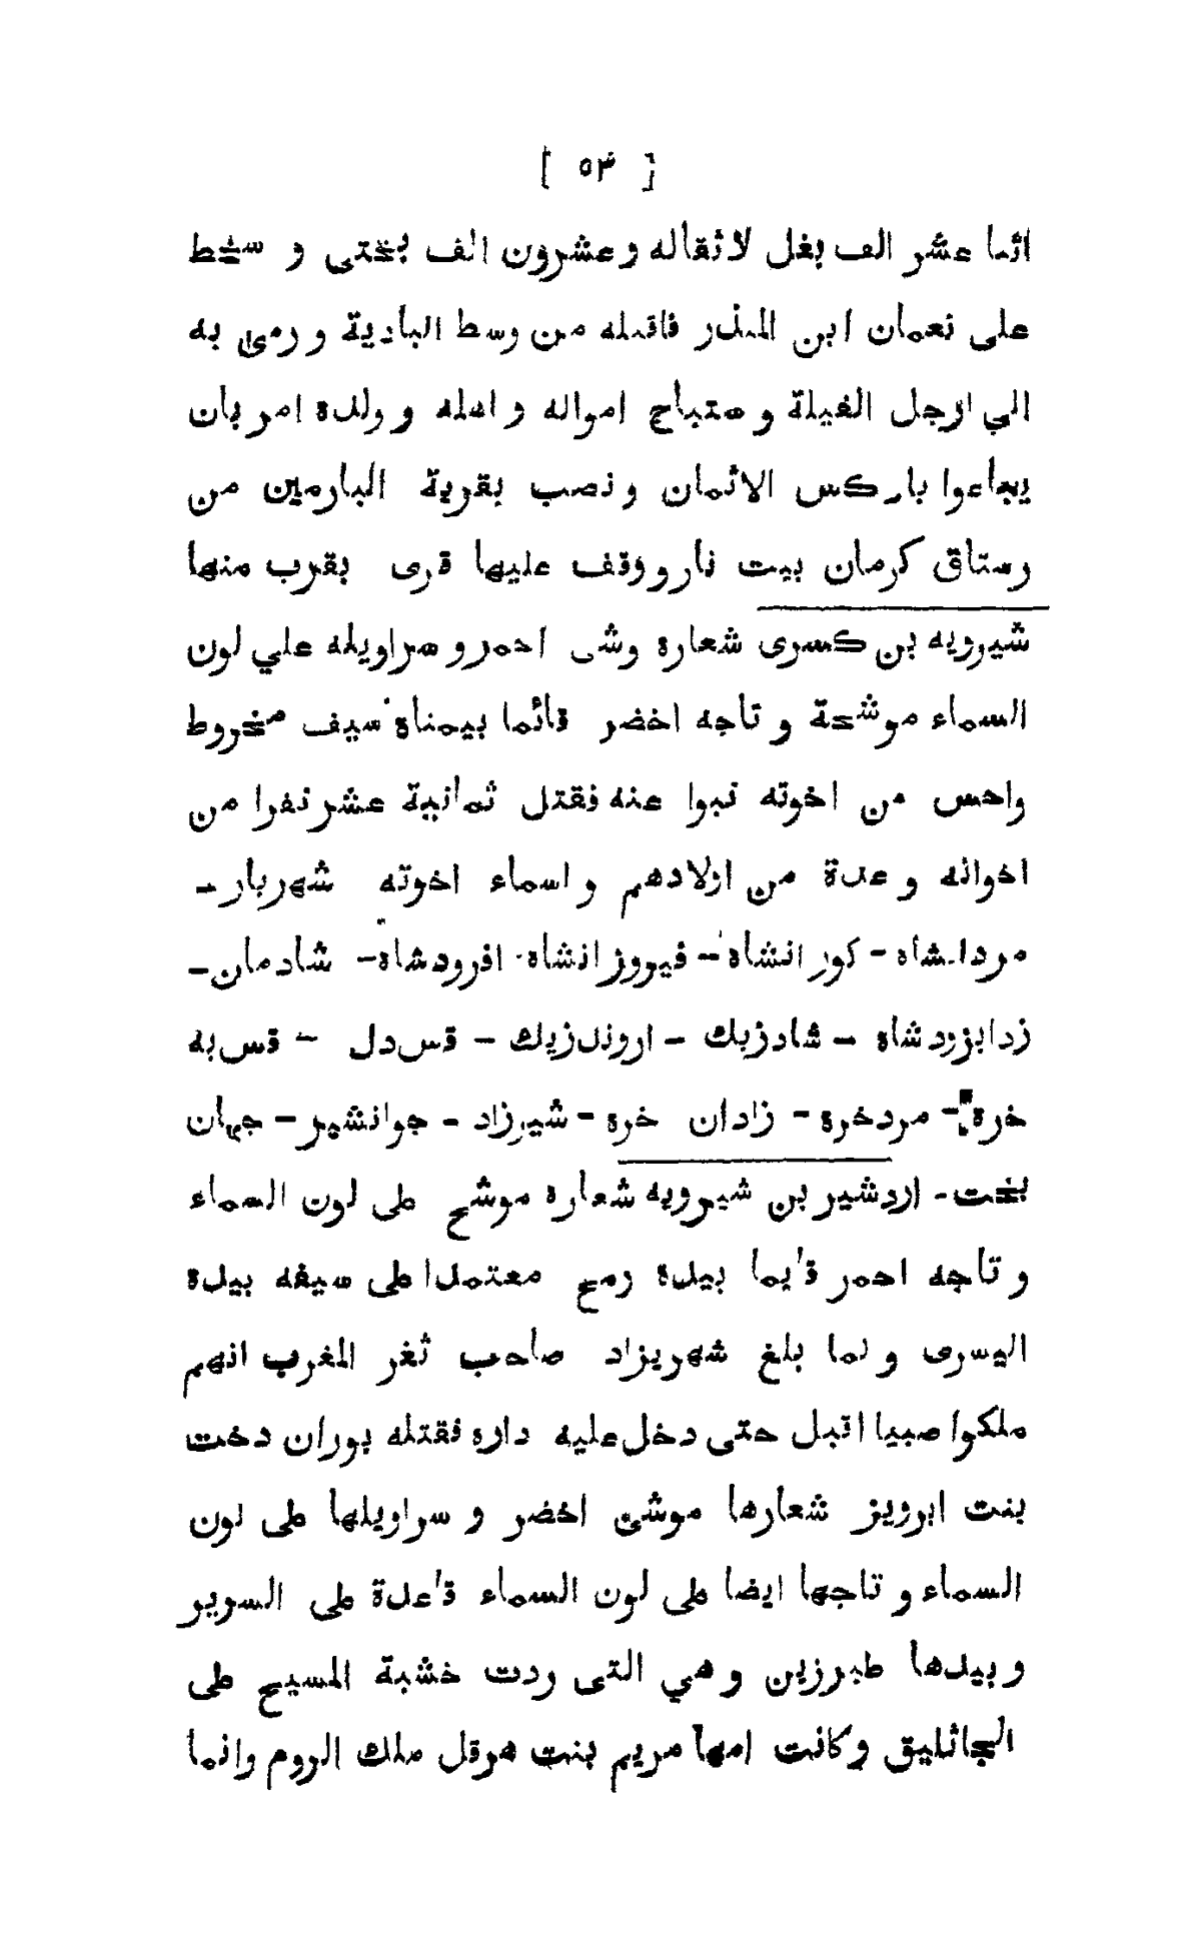 [ ٥٣ ]
اثنا عشر الف بغل لاثقاله وعشرون الف بختى و سخط
على نعمان ابن المنذر فاقتله من وسط البادية و رمى به
الي ارجل الفيلة و ستباح امواله و اهله و ولده امر بان
يباعوا باركس الاثمان و نصب بقرية البارمين من
رستاق كرمان بيت نار ووقف عليها قرى بقرب منها
شيرويه بن كسرى شعاره وشى احمر و سراويله علي لون
السماء موشحة و تاجه اخضر قائما بيمناه سيف مخروط
واحس من اخوته نبوا عنه فقتل ثمانية عشر نفرا من
اخوانه و عدة من اولادهم و اسماء اخوته شهربار-
مردانشاه - كورانشاه - فيروزانشاه افرودشاه - شادمان-
زدابزودشاه - شادزبك - اروندزيك - قس دل - قس به
خره - مردخره - زادان خره - شيرزاد - جوانشير - جهان
بخت - اردشير بن شيرويه شعاره موشح على لون السماء
و تاجه احمر قايما بيده رمح معتمدا على سيفه بيده
اليسرى و لما بلغ شهريزاد صاحب ثغر المغرب انهم
ملكوا صبيا اقبل حتى دخل عليه داره فقتله بوران دخت
بنت ابرويز شعارها موشى اخضر و سراويلها على لون
السماء و تاجها ايضا على لون السماء قاعدة على السرير
وبيدها طبرزين و هي التى ردت خشبة المسيح على
الجاثليق وكانت امها مريم بنت هرقل ملك الروم وانما